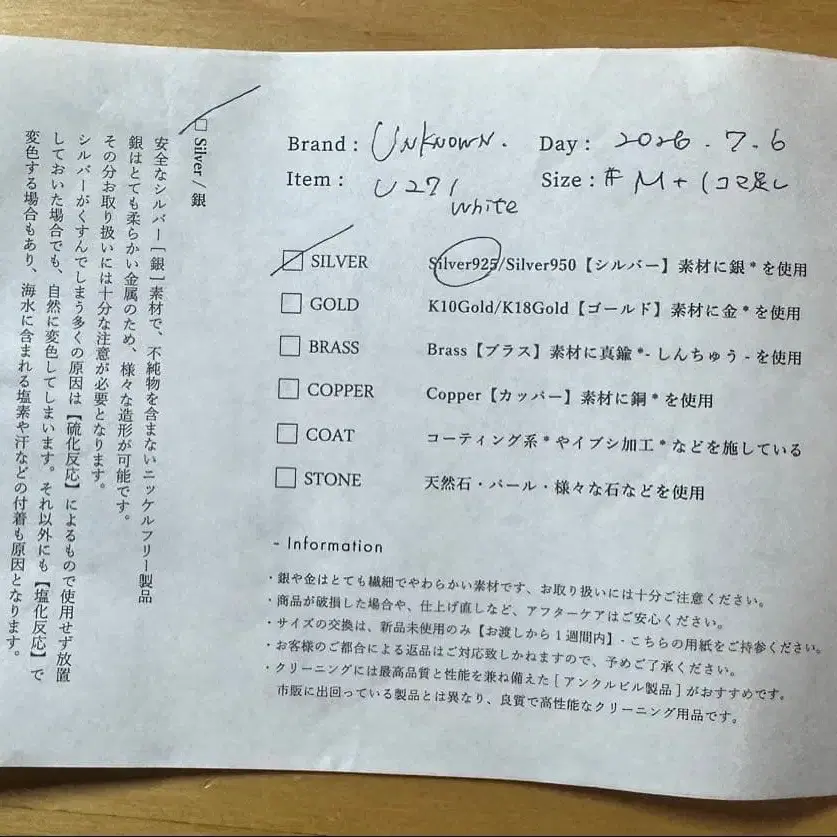 Brand : UNKNOWN. Day : 2026.7.6
Item : U271 Size : M+1コマ足し
white
☑ SILVER Silver925/Silver950【シルバー】素材に銀*を使用
□ GOLD K10Gold/K18Gold【ゴールド】素材に金*を使用
□ BRASS Brass【ブラス】素材に真鍮*- しんちゅう - を使用
□ COPPER Copper【カッパー】素材に銅*を使用
□ COAT コーティング系*やイブシ加工*などを施している
□ STONE 天然石・パール・様々な石などを使用
- Information
・銀や金はとても繊細でやわらかい素材です、お取り扱いには十分ご注意ください。
・商品が破損した場合や、仕上げ直しなど、アフターケアはご安心ください。
・サイズの交換は、新品未使用のみ【お渡しから1週間内】- こちらの用紙をご持参ください。
・お客様のご都合による返品はご対応致しかねますので、予めご了承ください。
・クリーニングには最高品質と性能を兼ね備えた [ アンクルビル製品 ] がおすすめです。
市販に出回っている製品とは異なり、良質で高性能なクリーニング用品です。
□ Silver / 銀
安全なシルバー [ 銀 ] 素材で、不純物を含まないニッケルフリー製品
銀はとても柔らかい金属のため、様々な造形が可能です。
その分お取り扱いには十分な注意が必要となります。
シルバーがくすんでしまう多くの原因は【硫化反応】によるもので使用せず放置
しておいた場合でも、自然に変色してしまいます。それ以外にも【塩化反応】で
変色する場合もあり、海水に含まれる塩素や汗などの付着も原因となります。